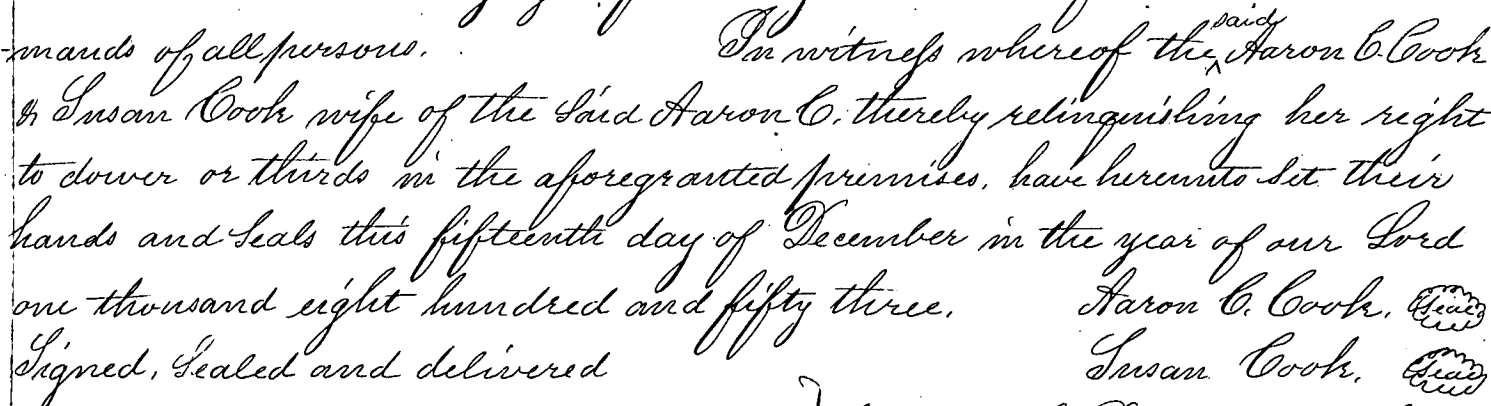 -mands of all persons. In witness whereof the said Aaron C. Cook
& Susan Cook wife of the said Aaron C. thereby relinquishing her right
to dower or thirds in the aforegranted premises, have hereunto set their
hands and seals this fifteenth day of December in the year of our Lord
one thousand eight hundred and fifty three. Aaron C. Cook. Seal
Signed, Sealed and delivered Susan Cook. Seal